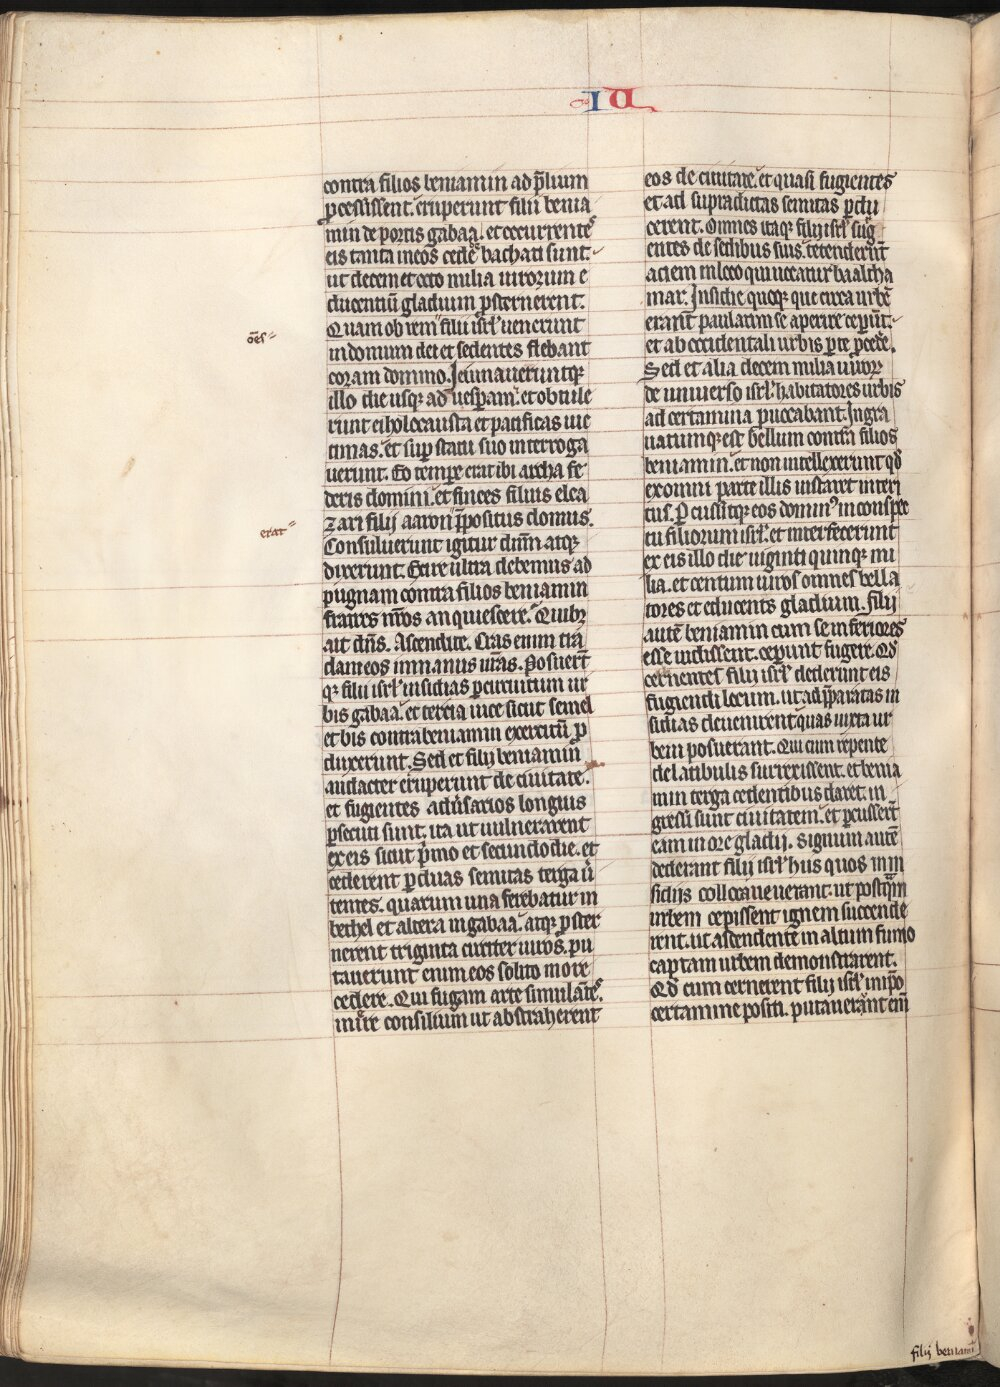 IU
contra filios beniamin ad p̄lium
ꝓcessissent. eruperunt filii benia
min de portis gabaa. et occurrentes
eis tanta in eos cede bachati sunt.
ut decem et octo milia uirorum e
ducentiū gladium ꝓsternerent.
Quam ob rem filii isrl' uenerunt
oēs
in domum dei et sedentes flebant
coram domino. Ieiunaueruntqꝫ
illo die usqꝫ ad uesꝑam. et obtule
runt ei holocausta et pacificas uic
timas. et suꝑ statu suo interroga
uerunt. Eo temꝑe erat ibi archa fe
deris domini. et finees filius elea
zari filij aaron p̄positus domus.
erat
Consuluerunt igitur dn̄m atqꝫ
dixerunt. Exire ultra debemus ad
pugnam contra filios beniamin
fratres nr̄os an quiescere. Quibꝫ
ait dn̄s. Ascendite. Cras enim tra
dam eos in manus ur̄as. Posuer̄t
qꝫ filii isrl' insidias ꝑ circuitum ur
bis gabaa. et tercia uice sicut semel
et bis contra beniamin exercitū ꝓ
duxerunt. Sed et filij beniamin
audacter eruperunt de ciuitate.
et fugientes adu'sarios longius
ꝑsecuti sunt. ita ut uulnerarent
ex eis sicut p'mo et secundo die. et
cederent ꝑ duas semitas terga u'
tentes. quarum una ferebatur in
bethel et altera in gabaa. atqꝫ ꝓster
nerent triginta circiter uiros. pu
tauerunt enim eos solito more
cedere. Qui fugam arte simulātes.
inire consilium ut abstraherent
eos de ciuitate. et quasi fugientes
et ad supradictas semitas ꝑdu
cerent. Omnes itaqꝫ filij isrl' sug
entes de sedibus suis. tetenderūt
aciem in loco qui uocatur baaltha
mar. Insidie quoqꝫ que circa urbē
erant paulatim se aperire ceꝑūt.
et ab occidentali urbis ꝑte ꝓcede.
Sed et alia decem milia uiroꝝ
de uniuerso isrl' habitatores urbis
ad certamina ꝓuocabant. Ingra
uatumqꝫ est bellum contra filios
beniamin. et non intellexerunt qd̄
ex omni parte illis instaret interi
tus. Ꝑcussitqꝫ eos dominꝰ in conspec
tu filiorum isrl'. et interfecerunt
ex eis illo die uiginti quinqꝫ mi
lia. et centum uiros omnes bella
tores et educents gladium. Filij
autē beniamin cum se inferiores
esse uidissent. ceperunt fugere. Qd̄
cernentes filij isrl' dederunt eis
fugiendi locum. ut ad p̄paratas in
sidias deuenirent quas iuxta ur
bem posuerant. Qui cum repente
de latibulis surrexissent. et benia
min terga cedentibus daret. in
gressi sunt ciuitatem. et ꝑcusser̄t
eam in ore gladij. signum autē
dederant filij isrl' hiis quos in in
sidijs collocauerant. ut postq̄m
urbem cepissent ignem succende
rent. ut ascendente in altum fumo
captam urbem demonstrarent.
Qd̄ cum cernerent filij isrl' in ip̄o
certamine positi. putauerānt enī
filij beniamī